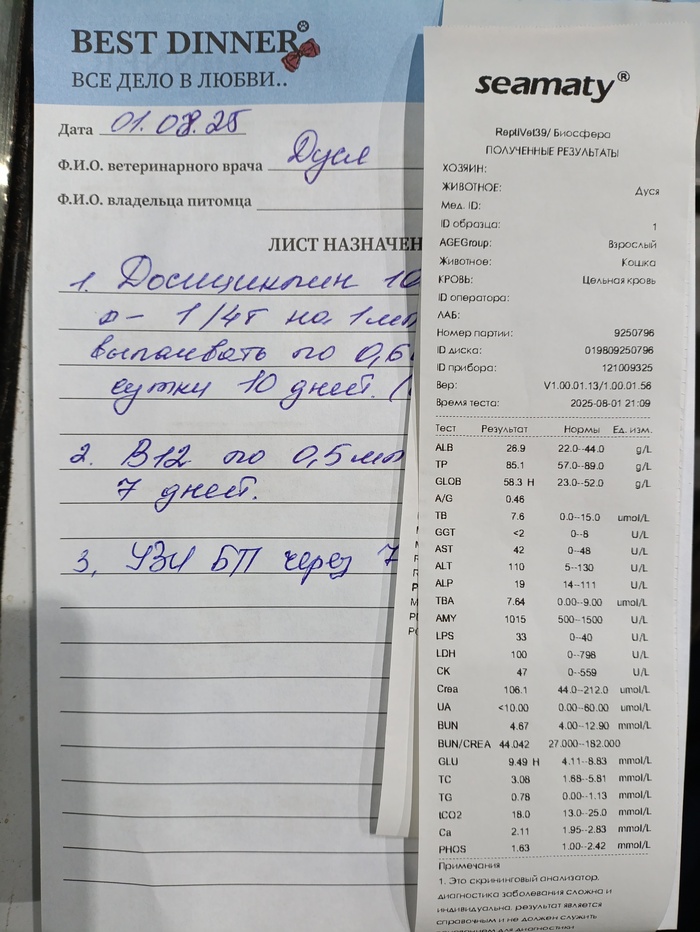 BEST DINNER
ВСЕ ДЕЛО В ЛЮБВИ..
Дата 01.08.25
Ф.И.О. ветеринарного врача Дуся
Ф.И.О. владельца питомца
ЛИСТ НАЗНАЧЕН
1. 10
1/4т на 1мл
выпаивать по 0,6
сутки 10 дней. (
2. В12 по 0,5мл
7 дней.
3. УЗИ БП через 7
seamaty®
ReptiVet39/ Биосфера
ПОЛУЧЕННЫЕ РЕЗУЛЬТАТЫ
ХОЗЯИН:
ЖИВОТНОЕ: Дуся
Мед. ID:
ID образца: 1
AGEGroup: Взрослый
Животное: Кошка
КРОВЬ: Цельная кровь
ID оператора:
ЛАБ:
Номер партии: 9250796
ID диска: 019809250796
ID прибора: 121009325
Вер: V1.00.01.13/1.00.01.56
Время теста: 2025-08-01 21:09
Тест Результат Нормы Ед. изм.
ALB 26.9 22.0--44.0 g/L
TP 85.1 57.0--89.0 g/L
GLOB 58.3 H 23.0--52.0 g/L
A/G 0.46
TB 7.6 0.0--15.0 umol/L
GGT <2 0--8 U/L
AST 42 0--48 U/L
ALT 110 5--130 U/L
ALP 19 14--111 U/L
TBA 7.64 0.00--9.00 umol/L
AMY 1015 500--1500 U/L
LPS 33 0--40 U/L
LDH 100 0--798 U/L
CK 47 0--559 U/L
Crea 106.1 44.0--212.0 umol/L
UA <10.00 0.00--60.00 umol/L
BUN 4.67 4.00--12.90 mmol/L
BUN/CREA 44.042 27.000--182.000
GLU 9.49 H 4.11--8.83 mmol/L
TC 3.08 1.68--5.81 mmol/L
TG 0.78 0.00--1.13 mmol/L
tCO2 18.0 13.0--25.0 mmol/L
Ca 2.11 1.95--2.83 mmol/L
PHOS 1.63 1.00--2.42 mmol/L
Примечания
1. Это скрининговый анализатор.
диагностика заболевания сложна и
индивидуальна. результат является
справочным и не должен служить